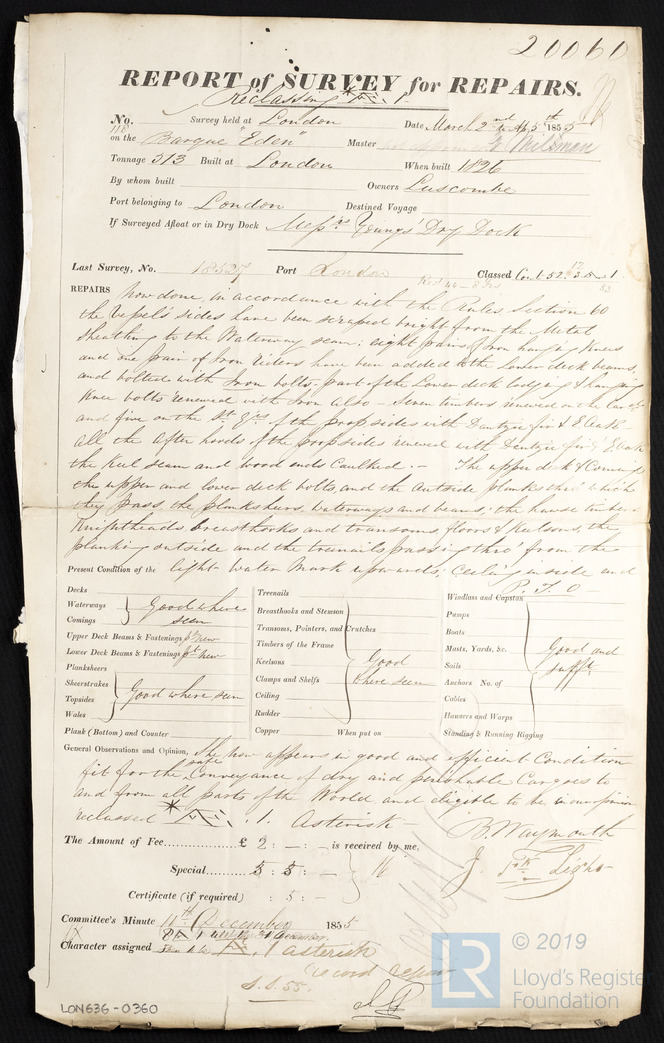 20060
REPORT of SURVEY for REPAIRS.
Reclassing *Æ. 1.
No. 118 Survey held at London Date March 2nd to 5th 1855
on the Barque "Eden" Master Milsman
Tonnage 313 Built at London When built 1826
By whom built Owners Luscombe
Port belonging to London Destined Voyage
If Surveyed Afloat or in Dry Dock Messrs Youngs' Dry Dock
Last Survey, No. 18527 Port London Classed
REPAIRS now done, in accordance with the Rules Section 60
the Vessels sides have been scraped bright from the Metal
sheathing to the Waterway seam: eight pairs of Iron hanging Knees
and one pair of Iron Riders have been added to the Lower deck beams,
and bolted with Iron bolts. part of the Lower deck lodging & hanging
Knee bolts renewed with Iron also - Seven timbers renewed on the
and five on the St. of the topsides with Dantzic fir & E. Oak
all the After hoods of the topsides renewed with Dantzic fir & E. Oak
the Keel seam and wood ends Caulked. - The upper deck & Comings
the upper and lower deck bolts, and the outside planks thro' which
they pass, the planksheers, waterways and beams, the hawse timbers
Knightheads breasthooks and transoms, floors & Keelsons, the
planking outside and the trenails passing thro' from the
light water mark upwards, Ceiling inside and
P. T. O -
Present Condition of the
Decks
Waterways
Comings
Good where seen
Upper Deck Beams & Fastenings pt New
Lower Deck Beams & Fastenings pt New
Planksheers
Sheerstrakes
Topsides
Wales
Good where seen
Plank (Bottom) and Counter
Treenails
Breasthooks and Stemson
Transoms, Pointers, and Crutches
Timbers of the Frame
Keelsons
Clamps and Shelfs
Ceiling
Rudder
Good where seen
Copper When put on
Windlass and Capstan
Pumps
Boats
Masts, Yards, &c.
Sails
Anchors No. of
Cables
Hawsers and Warps
Good and sufft.
Standing & Running Rigging
General Observations and Opinion, She now appears in good and efficient Condition
fit for the safe Conveyance of dry and perishable Cargoes to
and from all parts of the World and eligible to be in our opinion
reclassed *Æ. 1. Asterisk -
B. Waymouth
The Amount of Fee £ 2 : - : - is received by me,
Special 5 : 5 : -
Certificate (if required) : 5 : -
J.
Committee's Minute 11th December 1855
Character assigned Æ. 1 asterisk
record repairs
S.S. 55.
LON636-0360
LR
© 2019
Lloyd's Register
Foundation